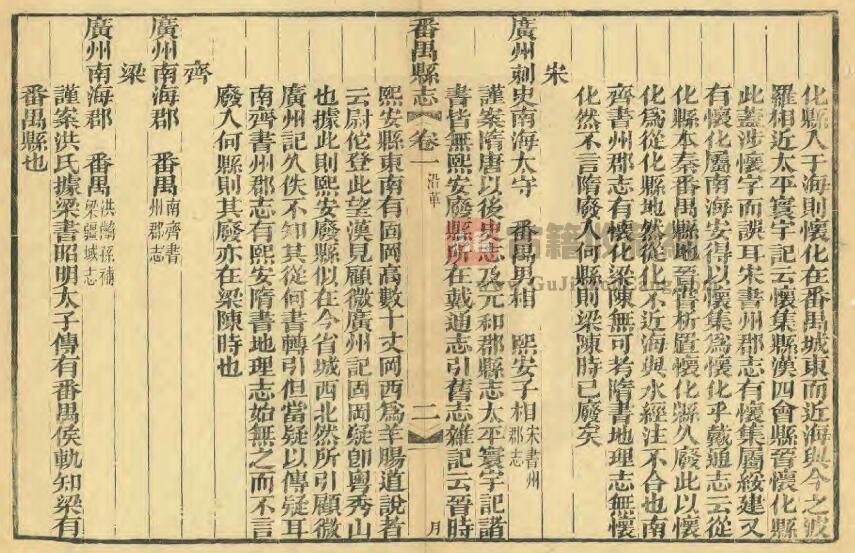 化縣入于海則懷化在番禺城東而近海與今之波
羅相近太平寰宇記云懷集縣漢四會縣晉懷化縣
此蓋涉懷字而誤耳宋書州郡志有懷集屬綏建又
有懷化屬南海安得以懷集爲懷化乎戴通志云從
化縣本秦番禺縣地至晉析置懷化縣久廢此以懷
化爲從化縣地然從化不近海與水經注不合也南
齊書州郡志有懷化梁陳無可考隋書地理志無懷
化然不言隋廢入何縣則梁陳時已廢矣
宋
廣州刺史南海太守 番禺男相 熙安子相宋書州郡志
謹案隋唐以後史志及元和郡縣志太平寰宇記諸
書皆無熙安廢縣所在戴通志引舊志雜記云晉時
番禺縣志 卷一 沿革 二 月
熙安縣東南有固岡高數十丈岡西爲羊腸道說者
云尉佗登此望漢見顧微廣州記固岡疑卽粵秀山
也據此則熙安廢縣似在今省城西北然所引顧微
廣州記久佚不知其從何書轉引但當疑以傳疑耳
南齊書州郡志有熙安隋書地理志始無之而不言
廢入何縣則其廢亦在梁陳時也
齊
廣州南海郡 番禺南齊書州郡志
梁
廣州南海郡 番禺洪齮孫補梁疆域志
謹案洪氏據梁書昭明太子傳有番禺侯軌知梁有
番禺縣也